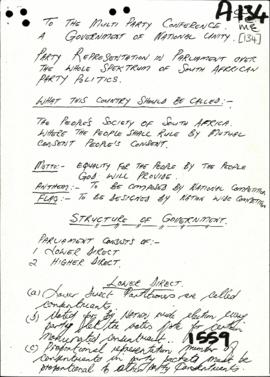 A134
TO THE MULTI PARTY CONFERENCE. ME
A GOVERNMENT OF NATIONAL UNITY. [134]
PARTY REPRESENTATION IN PARLIAMENT OVER
THE WHOLE SPEKTRUM OF SOUTH AFRICAN
PARTY POLITICS.
WHAT THIS COUNTRY SHOULD BE CALLED:-
THE PEOPLE'S SOCIETY OF SOUTH AFRICA.
WHERE THE PEOPLE SHALL RULE BY MUTUAL
CONSENT PEOPLE'S CONSENT.
MOTTO:- EQUALITY FOR THE PEOPLE BY THE PEOPLE
GOD WILL PROVIDE.
ANTHEM:- TO BE COMPOSED BY NATIONAL COMPETITION
FLAG:- TO BE DESIGNED BY NATION WIDE COMPETITION
STRUCTURE OF GOVERNMENT.
PARLIAMENT CONSISTS OF:-
1 LOWER DIRECT
2 HIGHER DIRECT.
LOWER DIRECT
(a) Lower Direct are called
(b) Voted for by NATION wide election every
party
1559
(c) Proportional representation number of
in party must be
proportional to